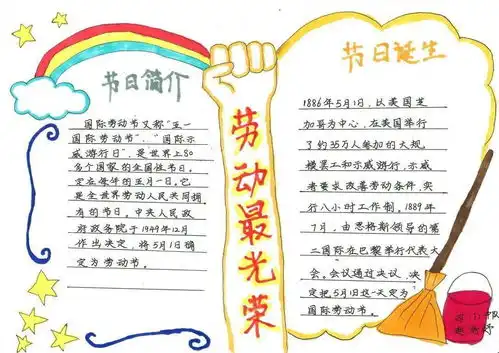 节日简介
国际劳动节又称"五一
国际劳动节"、"国际示
威游行日",是世界上80
多个国家的全国性节日。
定在每年的五月一日。它
是全世界劳动人民共同拥
有的节日。中央人民政
府政务院于1949年12月
作出决定,将5月1日确
定为劳动节。
劳动最光荣
节日诞生
1886年5月1日,以美国芝
加哥为中心,在美国举行
了约35万人参加的大规
模罢工和示威游行,示威
者要求改善劳动条件,实
行八小时工作制。1889年
7月,由恩格斯领导的第
二国际在巴黎举行代表大
会。会议通过决议,决
定把5月1日这一天定为
国际劳动节。